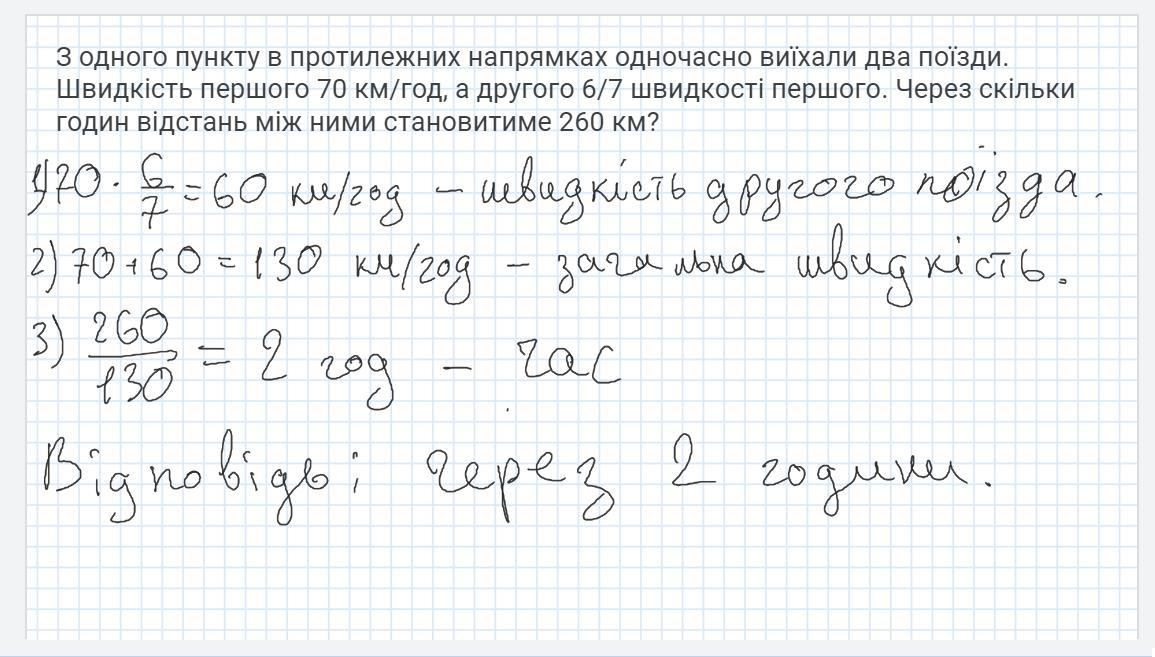 З одного пункту в протилежних напрямках одночасно виїхали два поїзди.
Швидкість першого 70 км/год, а другого 6/7 швидкості першого. Через скільки
годин відстань між ними становитиме 260 км?
1) 70 · 6/7 = 60 км/год – швидкість другого поїзда.
2) 70 + 60 = 130 км/год – загальна швидкість.
3) 260/130 = 2 год – час
Відповідь: через 2 години.